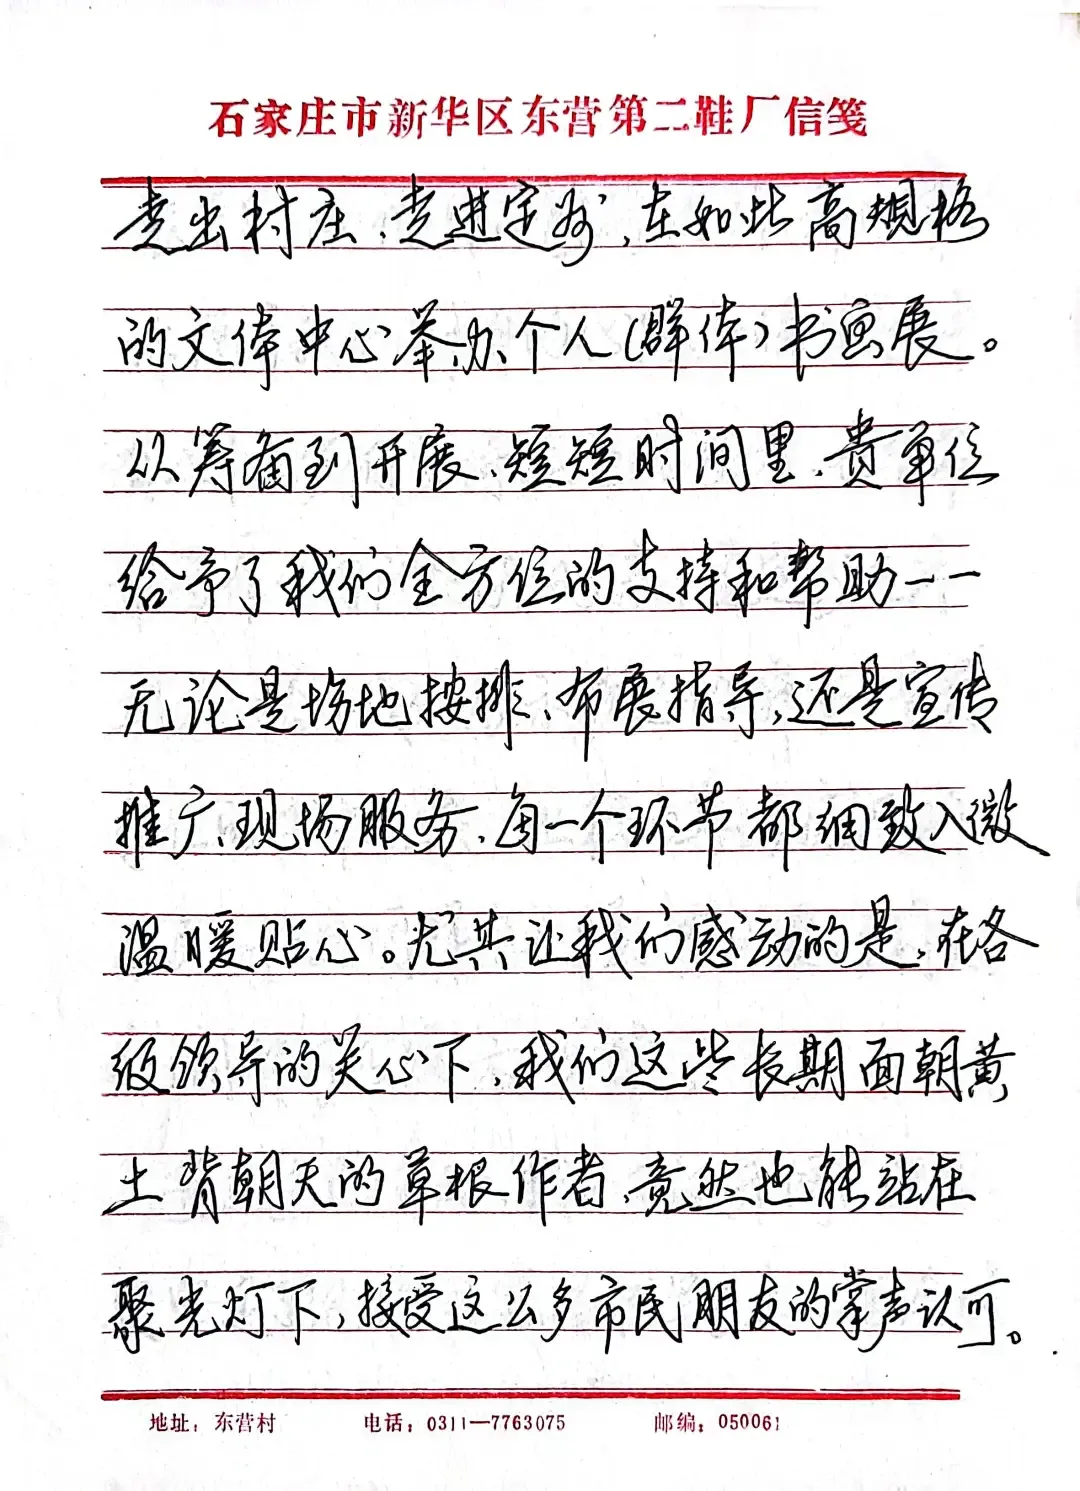 石家庄市新华区东营第二鞋厂信笺
走出村庄、走进定州，在如此高规格
的文体中心举办个人(群体)书画展。
从筹备到开展、短短时间里、贵单位
给予了我们全方位的支持和帮助一一
无论是场地按排、布展指导，还是宣传
推广、现场服务、每一个环节都细致入微
温暖贴心。尤其让我们感动的是，在各
级领导的关心下，我们这些长期面朝黄
土背朝天的草根作者，竟然也能站在
聚光灯下，接受这么多市民朋友的掌声认可。
地址：东营村 电话：0311—7763075 邮编：050061